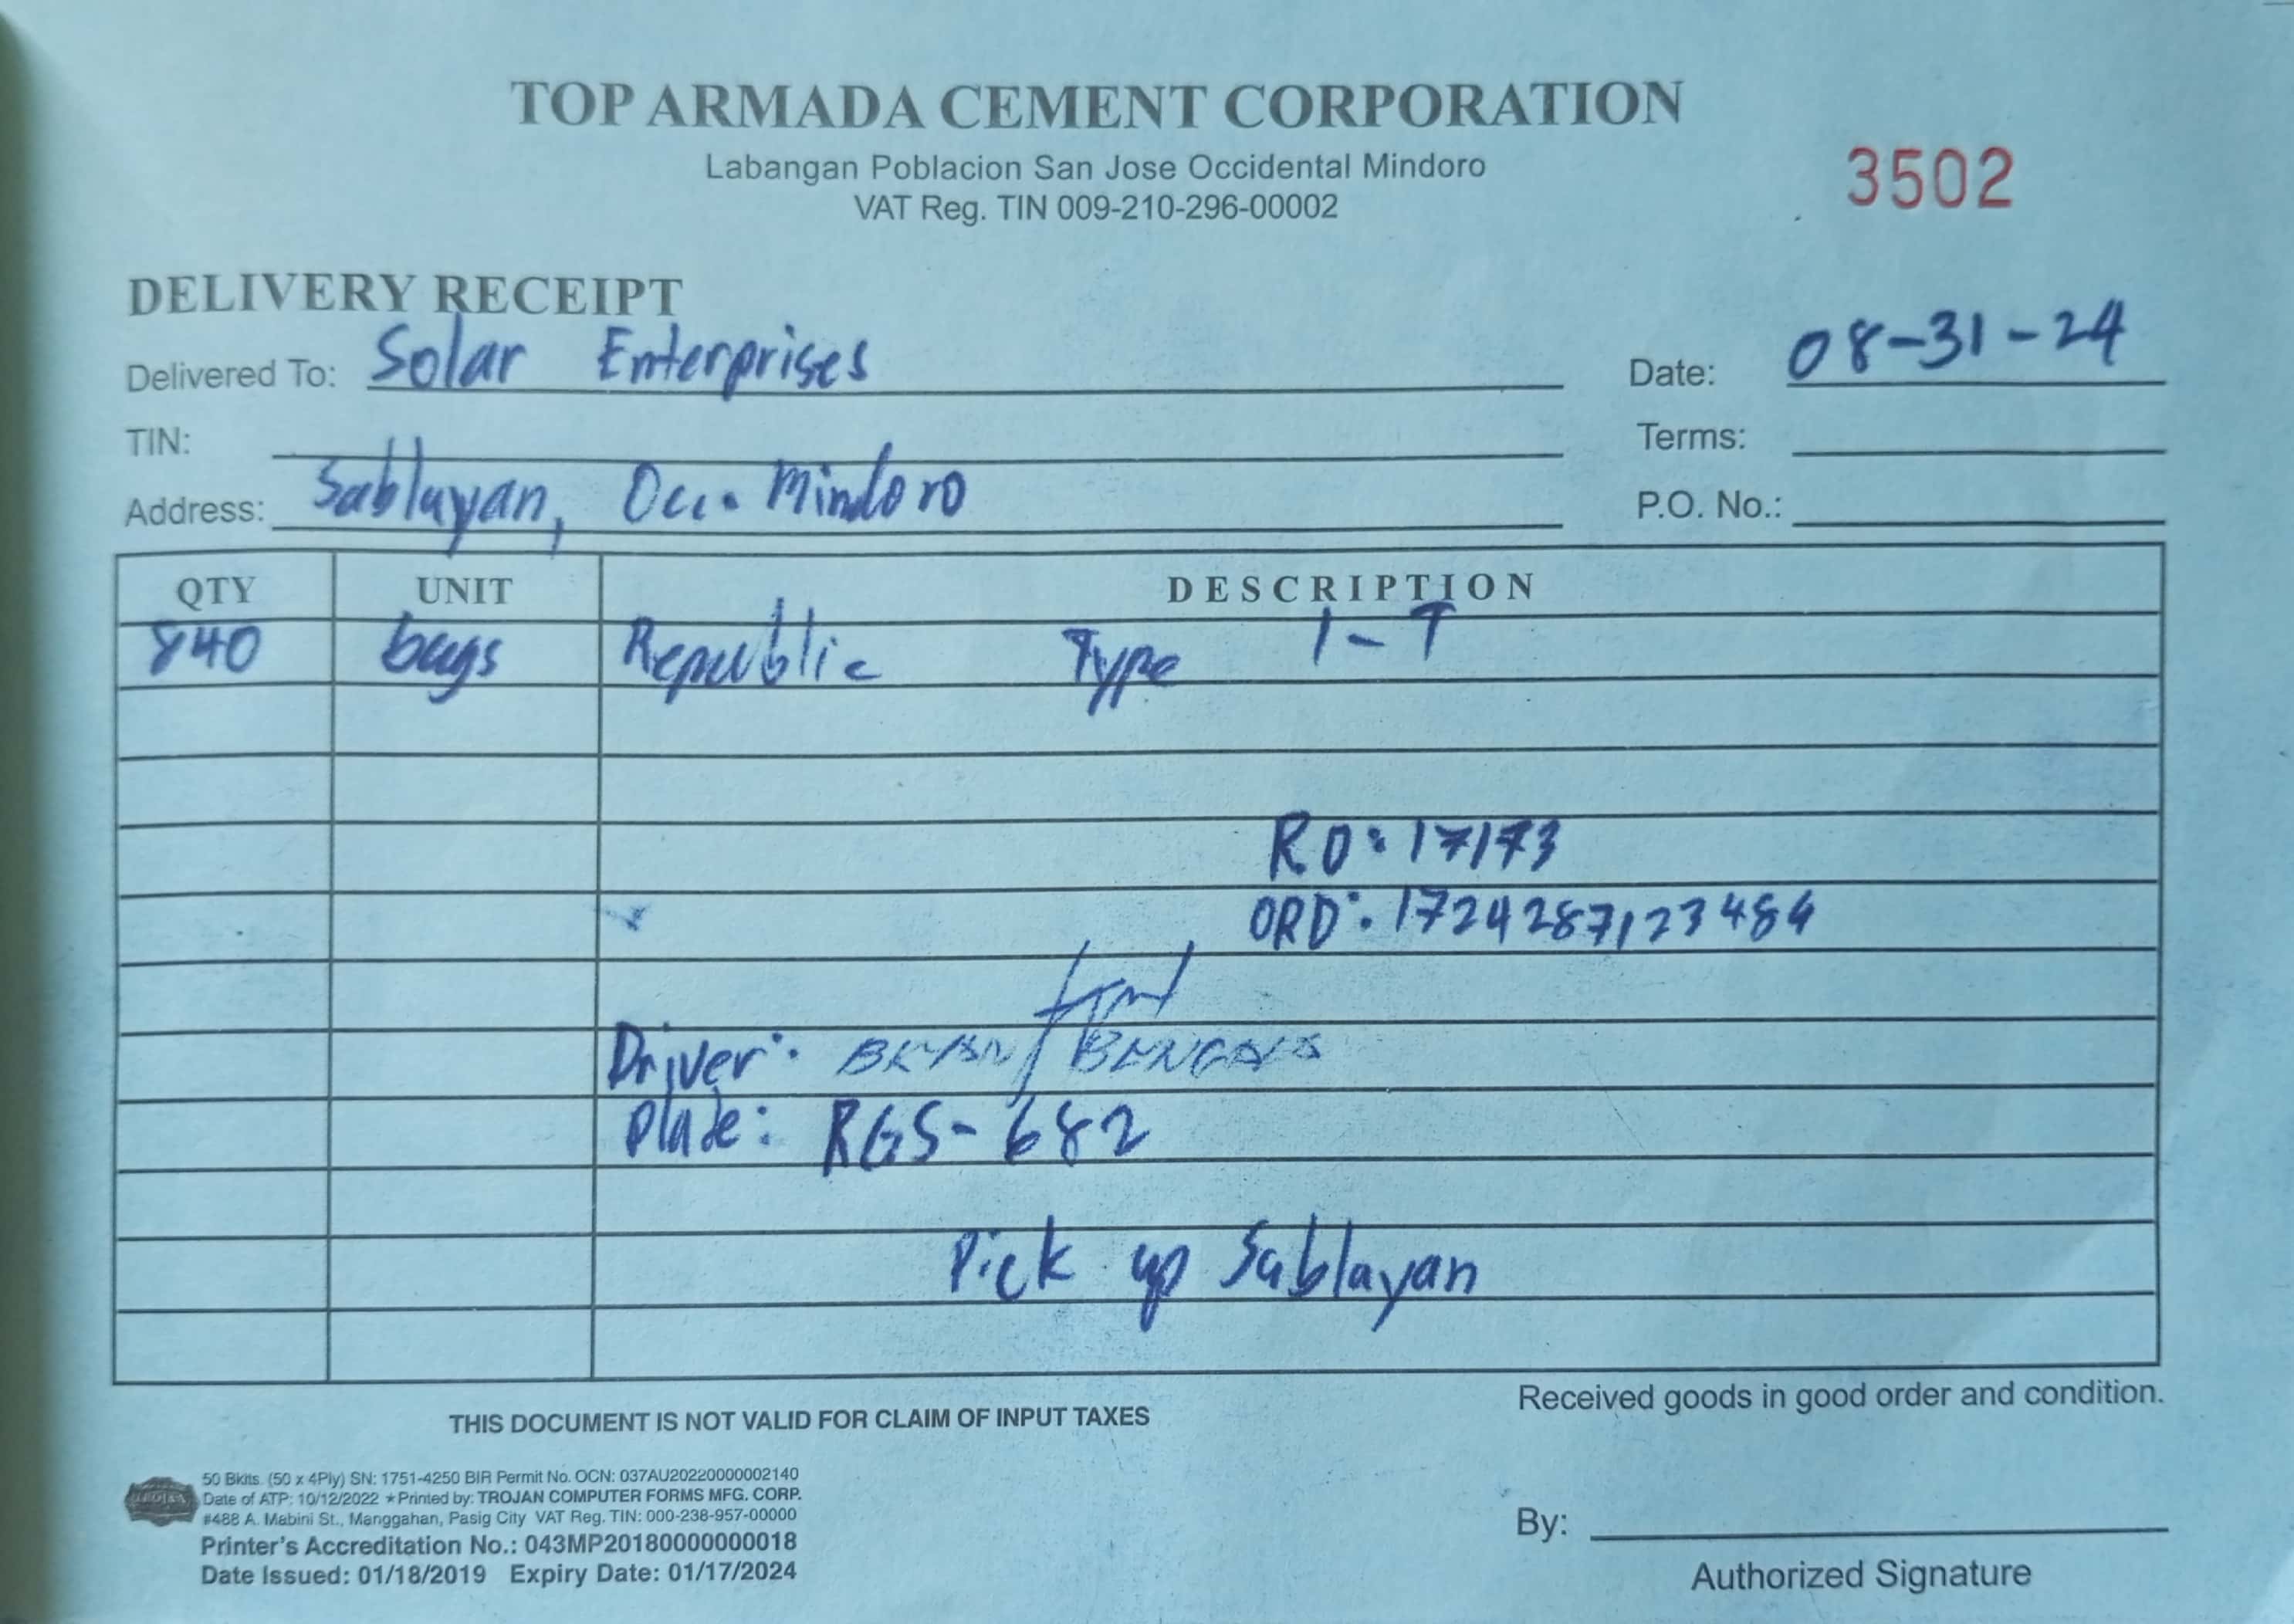 TOP ARMADA CEMENT CORPORATION
Labangan Poblacion San Jose Occidental Mindoro
VAT Reg. TIN 009-210-296-00002
3502
DELIVERY RECEIPT
Delivered To: Solar Enterprises
Date: 08-31-24
TIN:
Terms:
Address: Sablayan, Occ. Mindoro
P.O. No.:
QTY UNIT DESCRIPTION
840 bags Republic Type 1-T
RO: 17173
ORD: 1724287123484
Driver:
Plate: RGS-682
Pick up Sablayan
THIS DOCUMENT IS NOT VALID FOR CLAIM OF INPUT TAXES
Received goods in good order and condition.
50 Bklts. (50 x 4Ply) SN: 1751-4250 BIR Permit No. OCN: 037AU20220000002140
Date of ATP: 10/12/2022 ★Printed by: TROJAN COMPUTER FORMS MFG. CORP.
#488 A. Mabini St., Manggahan, Pasig City VAT Reg. TIN: 000-238-957-00000
Printer's Accreditation No.: 043MP20180000000018
Date Issued: 01/18/2019 Expiry Date: 01/17/2024
By:
Authorized Signature